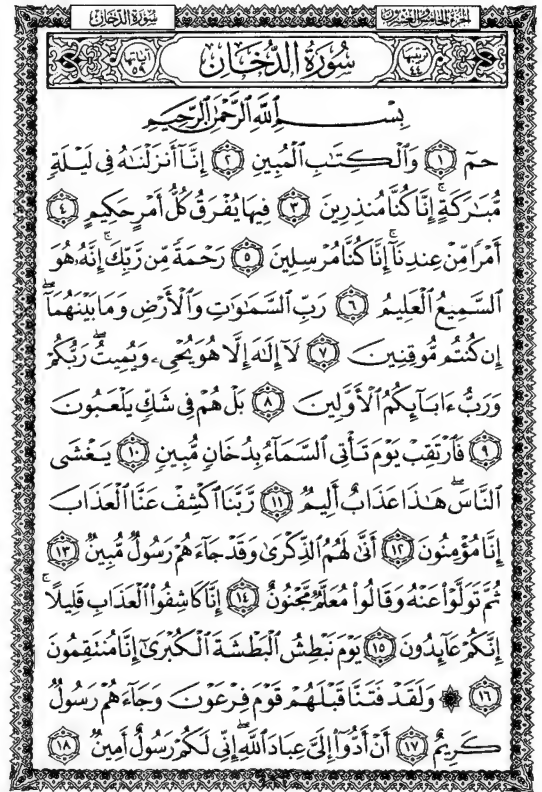 الجزء الخامس والعشرون سورة الدخان
ترتيبها ٤٤ سُورَةُ الدُّخَانِ آياتها ٥٩
بِسْمِ اللَّهِ الرَّحْمَٰنِ الرَّحِيمِ
حمٓ ١ وَٱلْكِتَٰبِ ٱلْمُبِينِ ٢ إِنَّآ أَنزَلْنَٰهُ فِى لَيْلَةٍ
مُّبَٰرَكَةٍ ۚ إِنَّا كُنَّا مُنذِرِينَ ٣ فِيهَا يُفْرَقُ كُلُّ أَمْرٍ حَكِيمٍ ٤
أَمْرًا مِّنْ عِندِنَآ ۚ إِنَّا كُنَّا مُرْسِلِينَ ٥ رَحْمَةً مِّن رَّبِّكَ ۚ إِنَّهُۥ هُوَ
ٱلسَّمِيعُ ٱلْعَلِيمُ ٦ رَبِّ ٱلسَّمَٰوَٰتِ وَٱلْأَرْضِ وَمَا بَيْنَهُمَآ ۖ
إِن كُنتُم مُّوقِنِينَ ٧ لَآ إِلَٰهَ إِلَّا هُوَ يُحْىِۦ وَيُمِيتُ ۖ رَبُّكُمْ
وَرَبُّ ءَابَآئِكُمُ ٱلْأَوَّلِينَ ٨ بَلْ هُمْ فِى شَكٍّ يَلْعَبُونَ
٩ فَٱرْتَقِبْ يَوْمَ تَأْتِى ٱلسَّمَآءُ بِدُخَانٍ مُّبِينٍ ١٠ يَغْشَى
ٱلنَّاسَ ۖ هَٰذَا عَذَابٌ أَلِيمٌ ١١ رَّبَّنَا ٱكْشِفْ عَنَّا ٱلْعَذَابَ
إِنَّا مُؤْمِنُونَ ١٢ أَنَّىٰ لَهُمُ ٱلذِّكْرَىٰ وَقَدْ جَآءَهُمْ رَسُولٌ مُّبِينٌ ١٣
ثُمَّ تَوَلَّوْا۟ عَنْهُ وَقَالُوا۟ مُعَلَّمٌ مَّجْنُونٌ ١٤ إِنَّا كَاشِفُوا۟ ٱلْعَذَابِ قَلِيلًا ۚ
إِنَّكُمْ عَآئِدُونَ ١٥ يَوْمَ نَبْطِشُ ٱلْبَطْشَةَ ٱلْكُبْرَىٰٓ إِنَّا مُنتَقِمُونَ
١٦ ۞ وَلَقَدْ فَتَنَّا قَبْلَهُمْ قَوْمَ فِرْعَوْنَ وَجَآءَهُمْ رَسُولٌ
كَرِيمٌ ١٧ أَنْ أَدُّوٓا۟ إِلَىَّ عِبَادَ ٱللَّهِ ۖ إِنِّى لَكُمْ رَسُولٌ أَمِينٌ ١٨